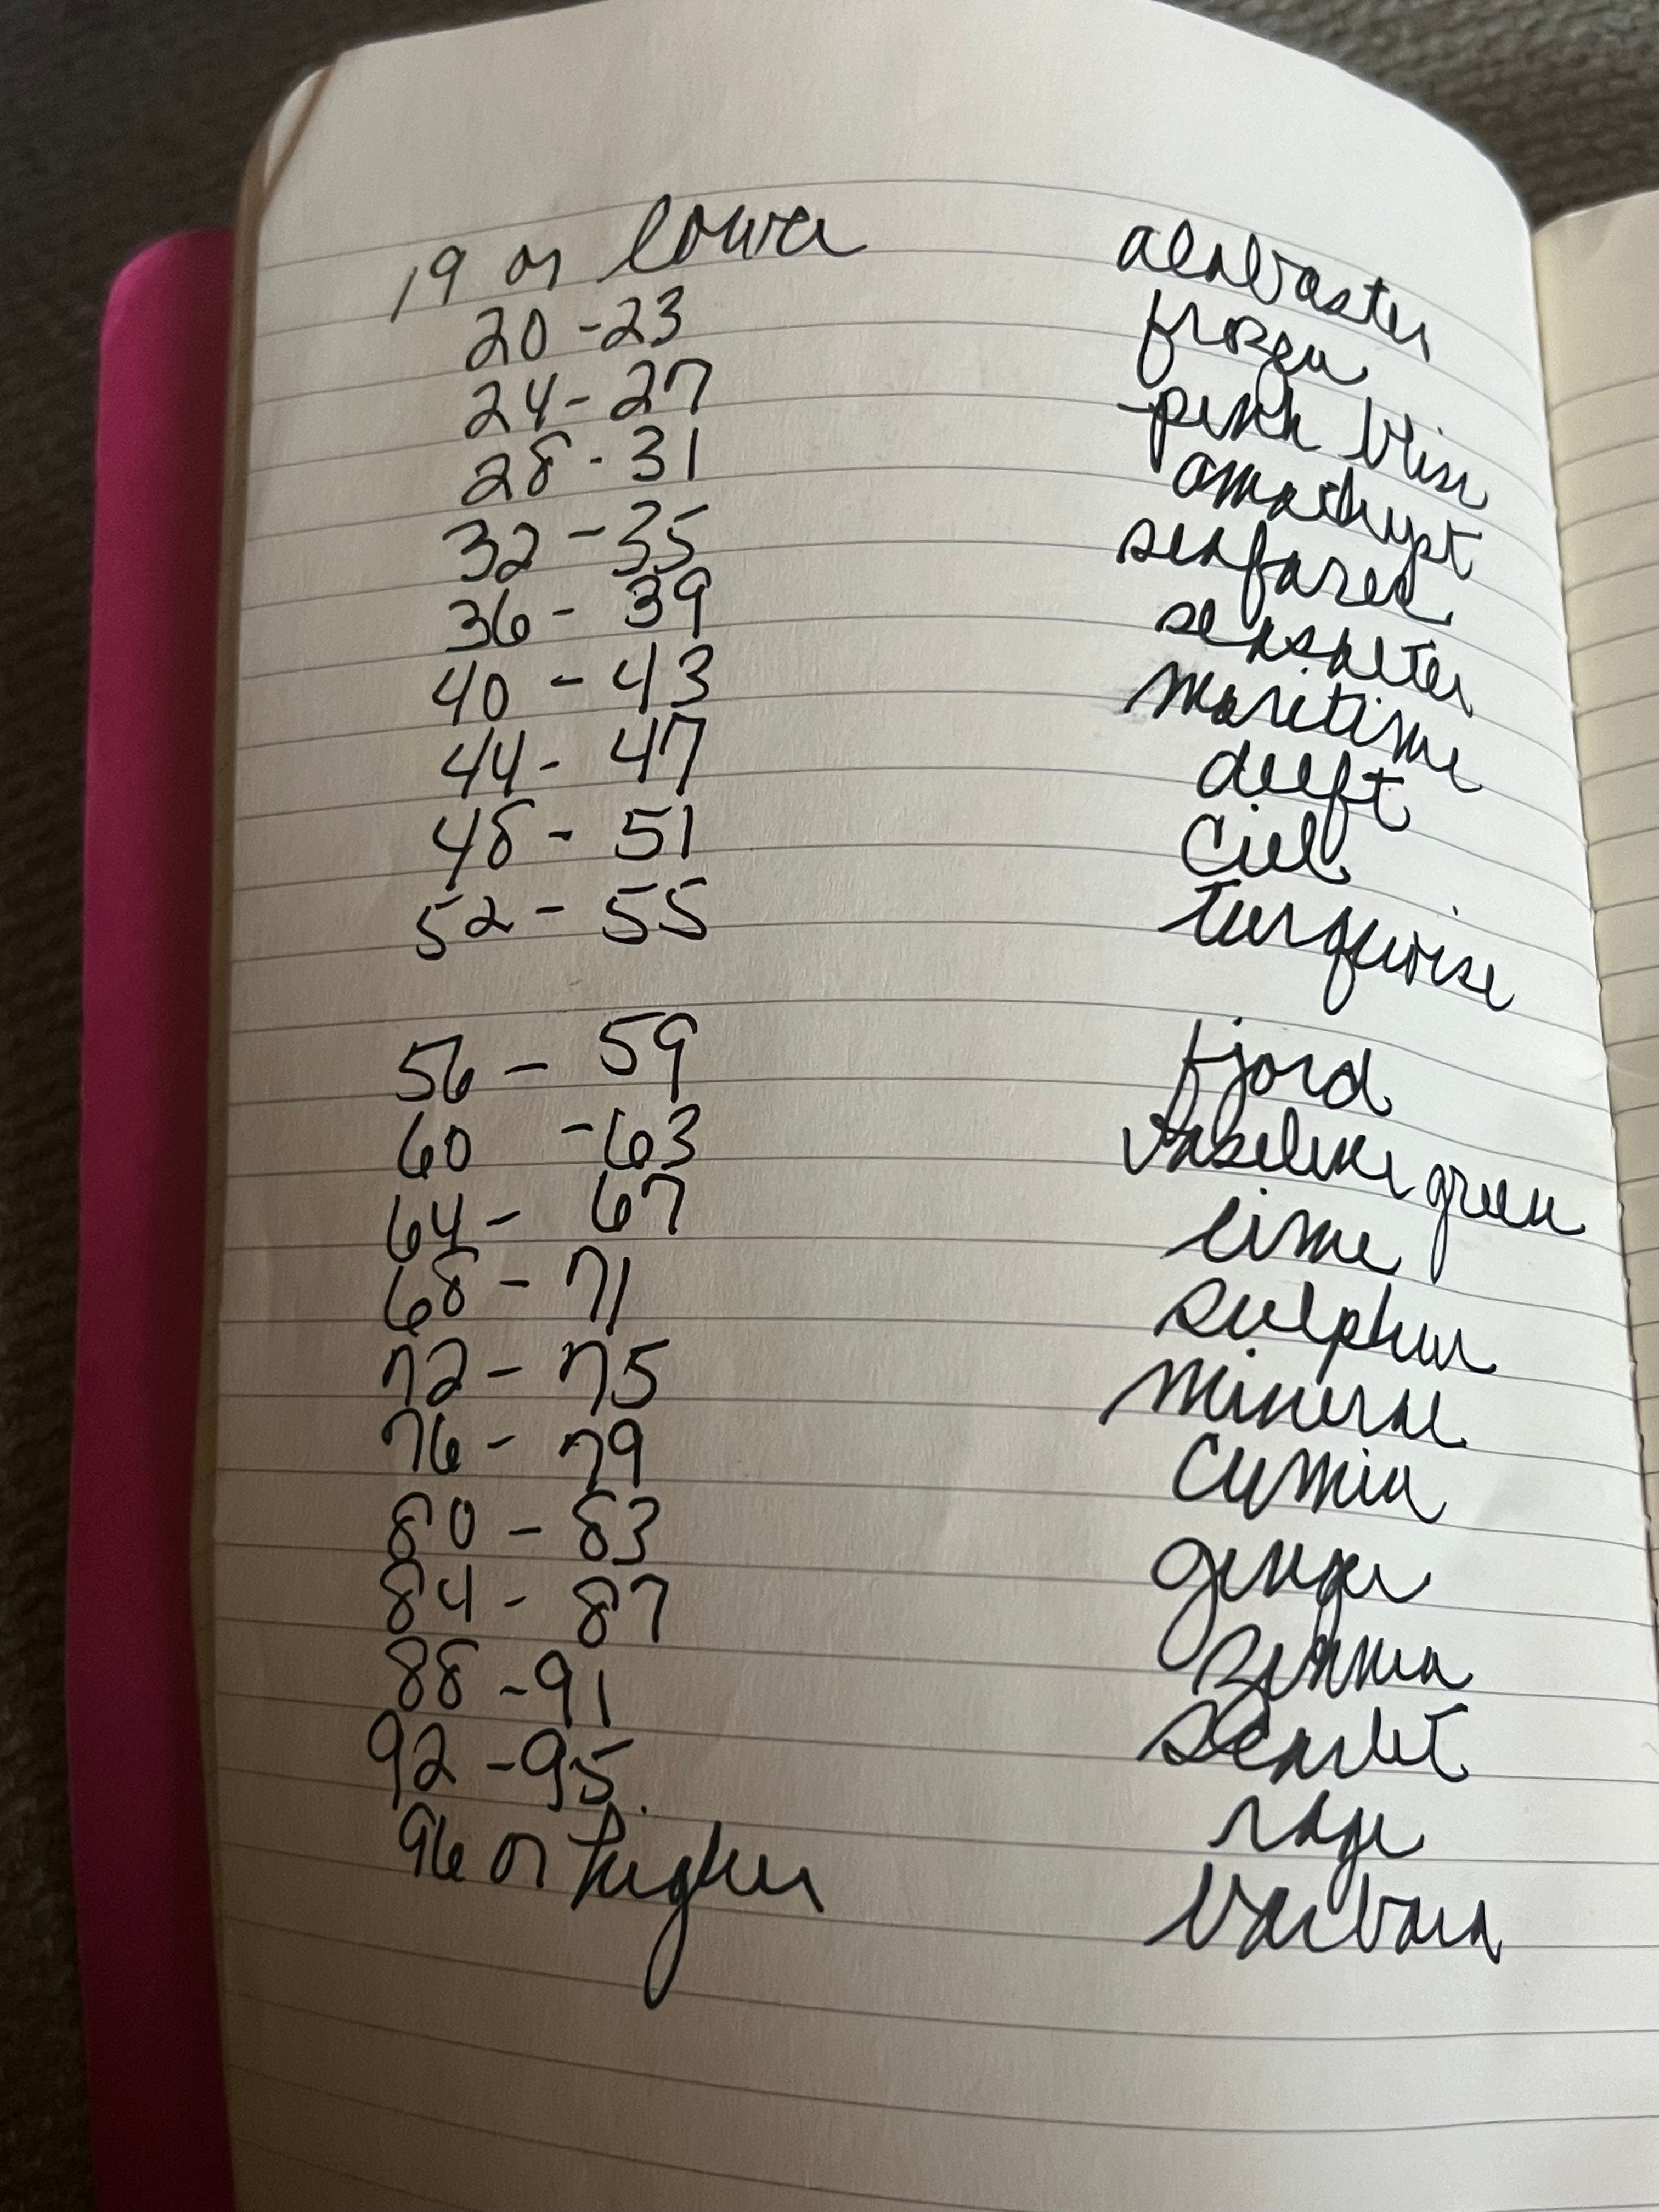 19 or lower alabaster
20 - 23 frozen
24 - 27 pink bliss
28 - 31 amathyst
32 - 35 seafarer
36 - 39 seasalter
40 - 43 maritime
44 - 47 delft
48 - 51 Ciel
52 - 55 turquoise
56 - 59 fjord
60 - 63 vaseline green
64 - 67 lime
68 - 71 sulphur
72 - 75 mineral
76 - 79 cumin
80 - 83 ginger
84 - 87 zinnia
88 - 91 scarlet
92 - 95 rage
96 or higher barbara